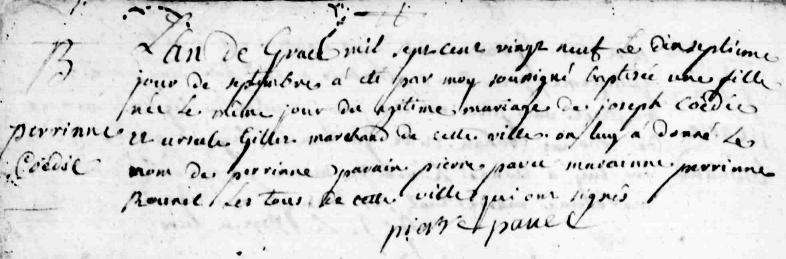 B
perrinne
Coédic
L'an de Grace mil sept cent vingt neuf Le dixseptieme
jour de septembre à été par moy sousigné baptisée une fille
née Le même jour du legitime mariage de joseph Coédic
et ursule Gilles marchand de cette ville on luy à donné Le
nom de perrinne parain pierre pavec maraienne perrinne
Les tous de cette ville qui ont signés
pierre pavec